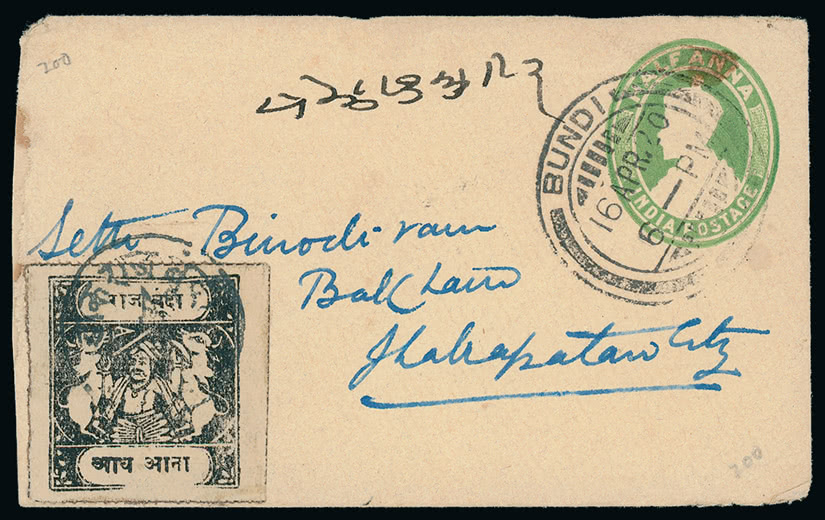 200
HALF ANNA
INDIA POSTAGE
BUNDI
16 APR. 20
6 - PM
Seth Binodi-ram
Balchand
Jhalrapatan City
राज बूंदी
आध आना
200